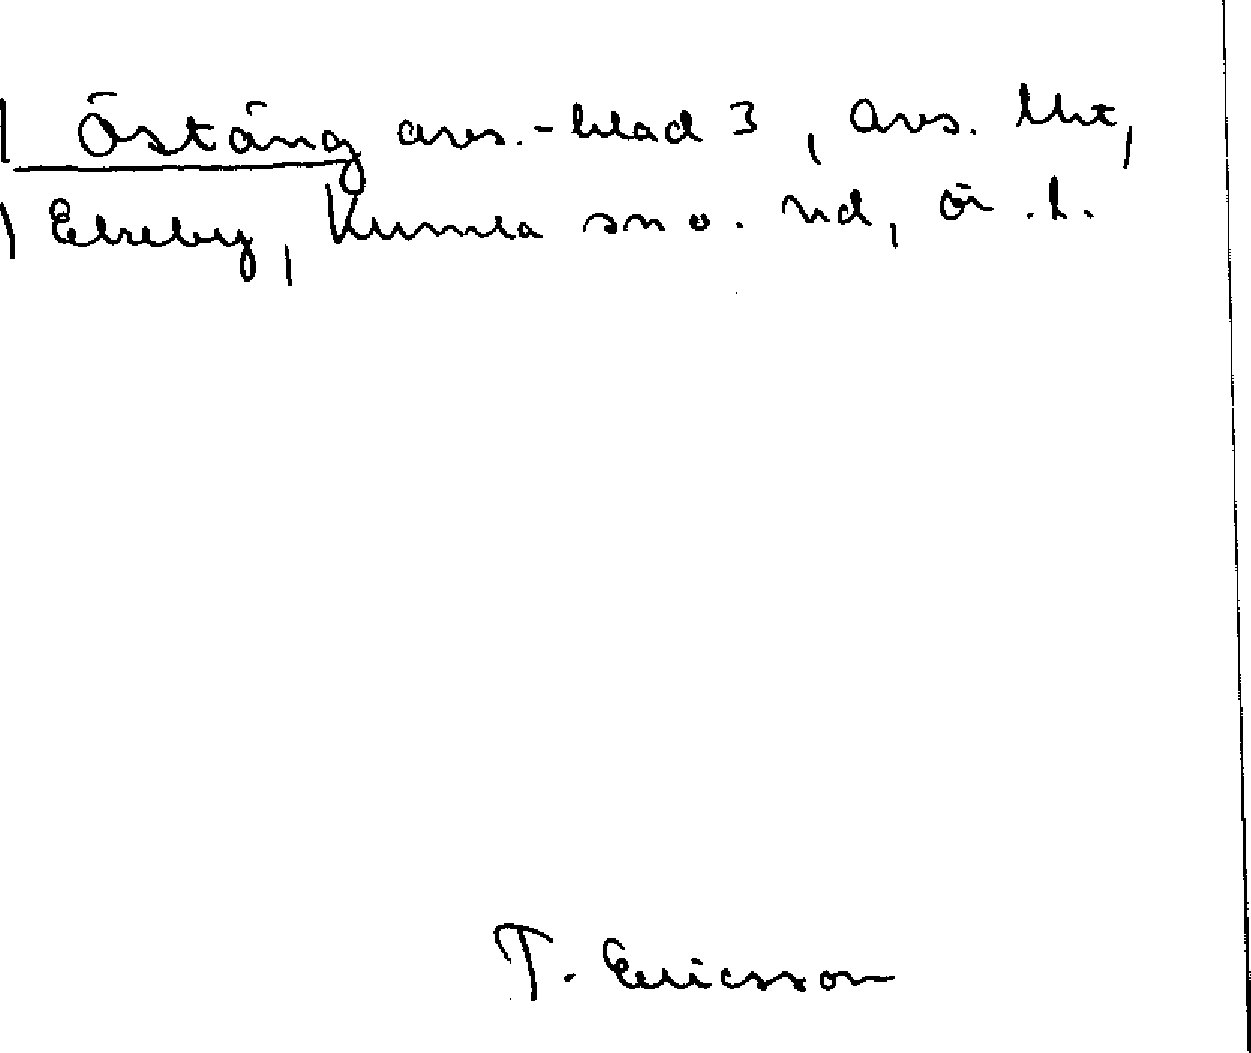 Östäng avs.-blad 3, avs. lht,
Ekeby, Kumla sn o. hd, ör. l.
T. Ericsson